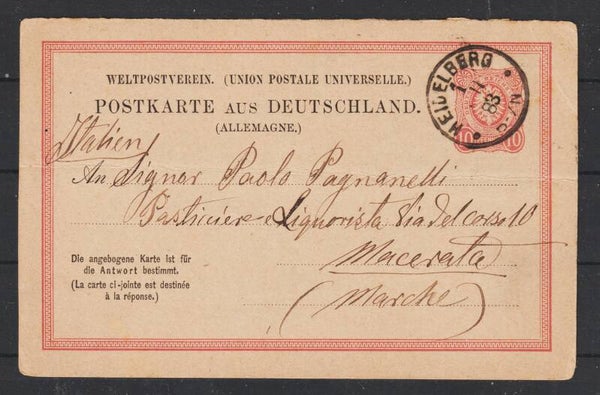 WELTPOSTVEREIN. (UNION POSTALE UNIVERSELLE.)
POSTKARTE AUS DEUTSCHLAND.
(ALLEMAGNE.)
HEIDELBERG
83
10 10
Italien
An Signar Paolo Pagnanelli
Pasticiere e Liquorista Via del corso 10
Macerata
(Marche)
Die angebogene Karte ist für
die Antwort bestimmt.
(La carte ci-jointe est destinée
à la réponse.)